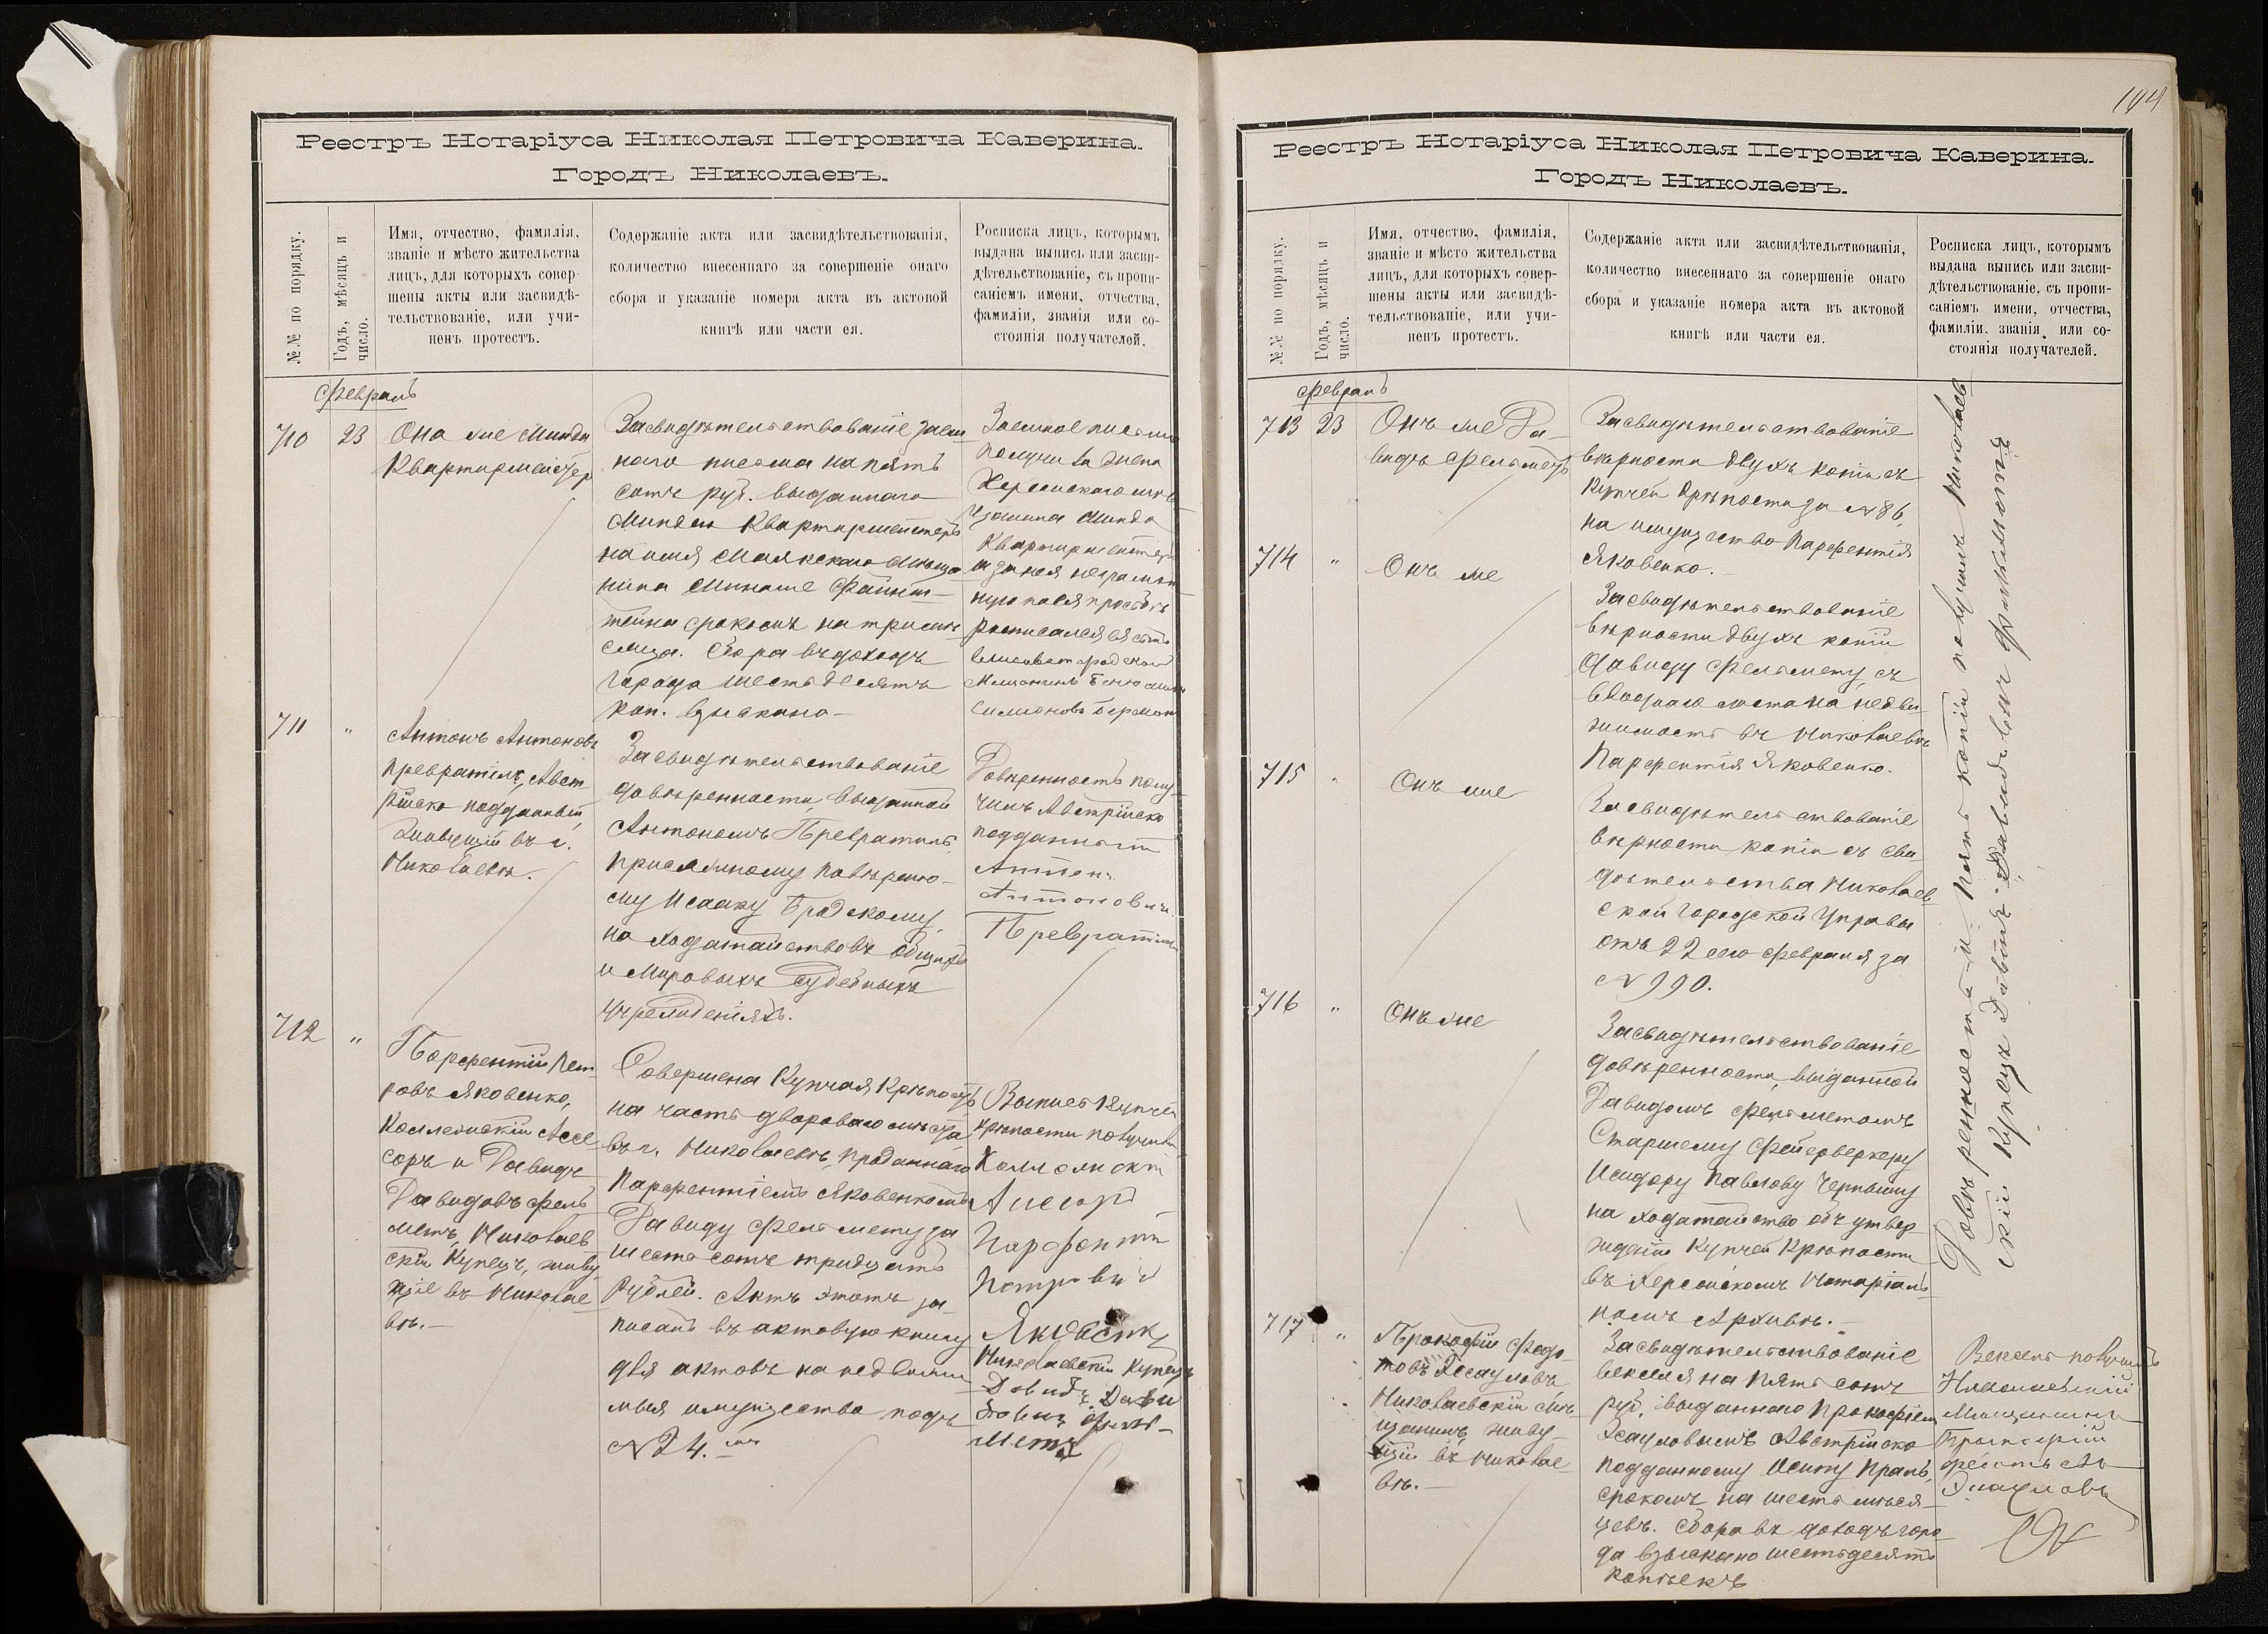 Реестръ Нотаріуса Николая Петровича Каверина.
Городъ Николаевъ.
№№ по порядку.
Годъ, мѣсяцъ и
число.
Имя, отчество, фамилія,
званіе и мѣсто жительства
лицъ, для которыхъ совер-
шены акты или засвидѣ-
тельствованіе, или учи-
ненъ протестъ.
Содержаніе акта или засвидѣтельствованія,
количество внесеннаго за совершеніе онаго
сбора и указаніе номера акта въ актовой
книгѣ или части ея.
Росписка лицъ, которымъ
выдана выпись или засви-
дѣтельствованіе, съ пропи-
саніемъ имени, отчества,
фамиліи, званія или со-
стоянія получателей.
Февраль
710
23
Она же Миндля
Квартирмейстер
Засвидѣтельствованіе заем
наго письма на пять
сотъ руб. выданнаго
Миндлею Квартирмейстеръ
на имя Маякскаго Мѣща
нина Файнш-
тейна срокомъ на три мѣ-
сяца. Сбора въ доходъ
города шестьдесятъ
коп. взыскано—
Заемное письмо
получила жена
Херсонскаго мѣ
щанина Миндля
Квартирмейстеръ
а за нея неграмот
ную по ея просьбѣ
росписался
Елисаветградскій
Мѣщанинъ
711
"
Антонъ Антоновъ
Превратилъ, Авст
рійско подданный
живущій въ г.
Николаевѣ.
Засвидѣтельствованіе
довѣренности, выданной
Антономъ Превратилъ
присяжному повѣрено-
му Исааку Бродскому,
на ходатайство въ общихъ
и мировыхъ судебныхъ
учрежденіяхъ.
Довѣренность полу-
чилъ Австрійско
подданный
Антонъ
Антоновичъ
Превратилъ
712
"
Парфентій Пет
ровъ Яковенко,
Коллежскій Ассе
соръ и Давидъ
Давидовъ Фель
метъ, Николаев
скій Купецъ, живу
щіе въ Николае
вѣ.—
Совершена Купчая Крѣпость
на часть двороваго мѣста
въ г. Николаевѣ, проданнаго
Парфентіемъ Яковенкомъ
Давиду Фельмету за
шестьсотъ тридцать
рублей. Актъ этотъ за-
писанъ въ актовую книгу
для актовъ на недвижи
мыя имущества подъ
№ 24.
Выпись купчей
крѣпости получили
Коллежскій
Ассесоръ
Парфентій
Петровичъ
Яковенко
Николаевскій Купецъ
Давидъ Дави
довичъ Фель-
метъ
194
Реестръ Нотаріуса Николая Петровича Каверина.
Городъ Николаевъ.
№№ по порядку.
Годъ, мѣсяцъ и
число.
Имя, отчество, фамилія,
званіе и мѣсто жительства
лицъ, для которыхъ совер-
шены акты или засвидѣ-
тельствованіе, или учи-
ненъ протестъ.
Содержаніе акта или засвидѣтельствованія,
количество внесеннаго за совершеніе онаго
сбора и указаніе номера акта въ актовой
книгѣ или части ея.
Росписка лицъ, которымъ
выдана выпись или засви-
дѣтельствованіе, съ пропи-
саніемъ имени, отчества,
фамиліи, званія или со-
стоянія получателей.
Февраль
713
23
Онъ же Да-
видъ Фельметъ
Засвидѣтельствованіе
вѣрности двухъ копій съ
купчей крѣпости за № 86,
на имущество Парфентія
Яковенко.
714
"
Онъ же
Засвидѣтельствованіе
вѣрности двухъ копій
Давиду Фельмету, съ
вводнаго листа на недви
жимость въ Николаевѣ
Парфентія Яковенко.
715
"
Онъ же
Засвидѣтельствованіе
вѣрности копіи съ сви
дѣтельства Николаев
ской Городской Управы
отъ 22 сего февраля за
№ 990.
716
"
Онъ же
Засвидѣтельствованіе
довѣренности, выданной
Давидомъ Фельметомъ
Старшему Фейерверкеру
Исидору Павлову Чернышу
на ходатайство объ утвер
жденіи Купчей Крѣпости
въ Херсонскомъ Нотаріаль
номъ Архивѣ.—
Довѣренность и пять копій получилъ Николаев
скій Купецъ Давидъ Давидовичъ Фельметъ
717
"
Прокофій Федо-
товъ Есауловъ
Николаевскій мѣ
щанинъ, живу-
щій въ Николае
вѣ.—
Засвидѣтельствованіе
векселя на пять сотъ
руб., выданнаго Прокофіем
Есауловымъ Австрійско
подданному Осипу Праль,
срокомъ на шесть мѣся-
цевъ. Сбора въ доходъ горо-
да взыскано шестьдесятъ
копѣекъ
Вексель получилъ
Николаевскій
Мѣщанинъ
Прокофій
Федотовъ
Есауловъ